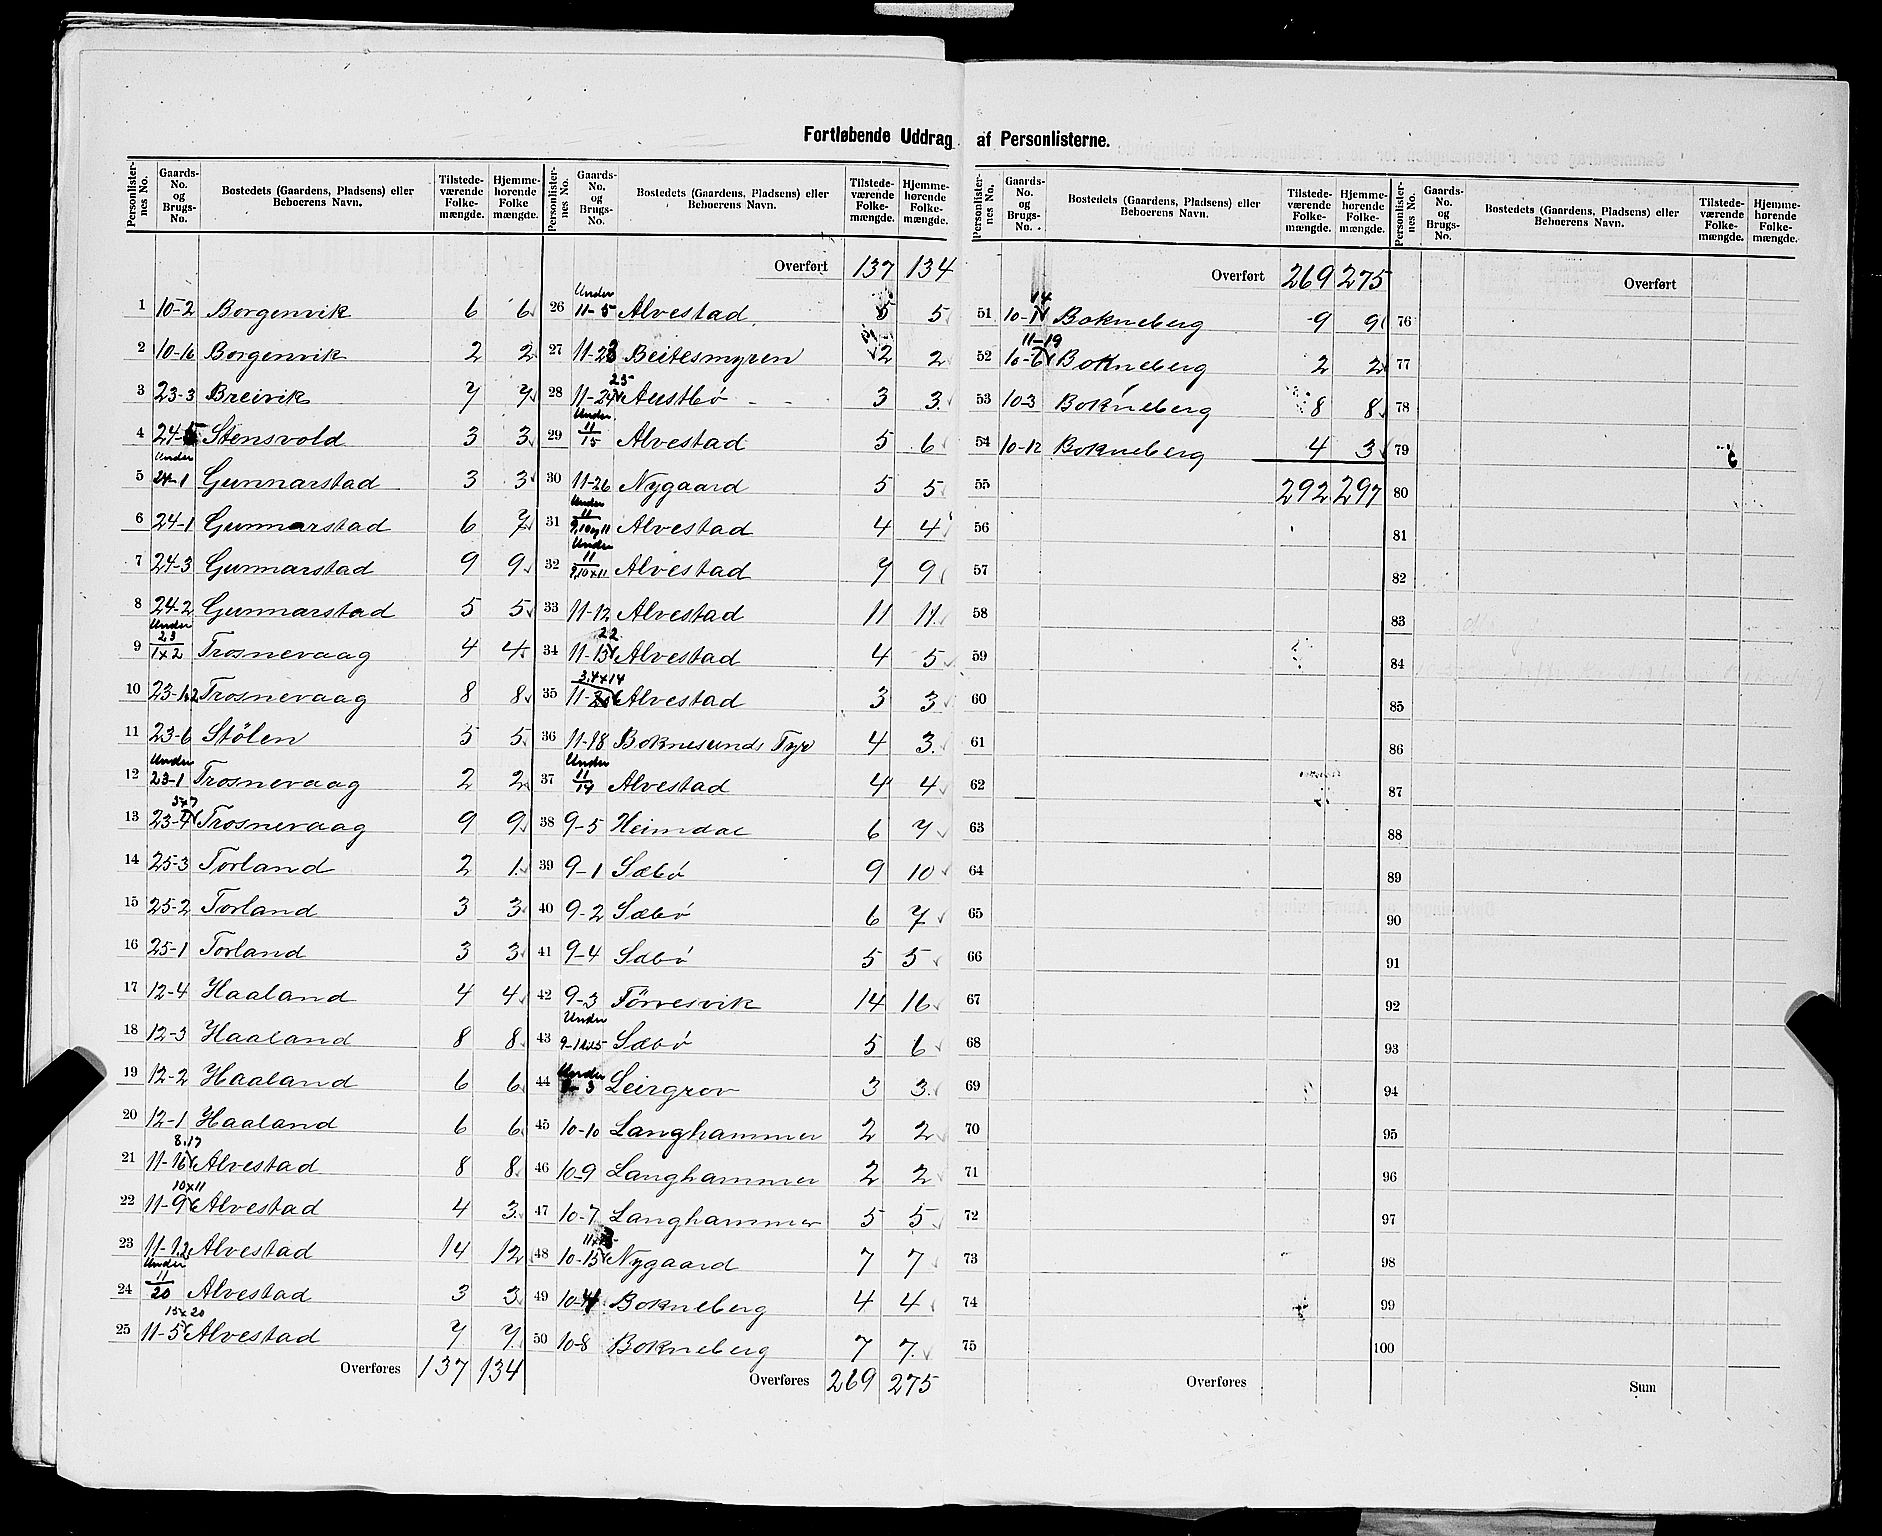 Fortløbende Uddrag af Personlisterne.
Personlister-nes No. Gaards-No. og Brugs-No. Bostedets (Gaardens, Pladsens) eller Beboerens Navn. Tilstede-værende Folke-mængde. Hjemme-hørende Folke mængde.
1 10-2 Borgenvik 6 6
2 10-16 Borgenvik 2 2
3 23-3 Breivik 7 7
4 24-5 Stensvold 3 3
5 Under 24-1 Gunnarstad 3 3
6 24-1 Gunnarstad 6 7
7 24-3 Gunnarstad 9 9
8 24-2 Gunnarstad 5 5
9 Under 23 1x2 Trosnevaag 4 4
10 23-1,2 Trosnevaag 8 8
11 23-6 Stølen 5 5
12 Under 23-1 Trosnevaag 2 2
13 23-4 5x7 Trosnevaag 9 9
14 25-3 Torland 2 1
15 25-2 Torland 3 3
16 25-1 Torland 3 3
17 12-4 Haaland 4 4
18 12-3 Haaland 8 8
19 12-2 Haaland 6 6
20 12-1 Haaland 6 6
21 11-16 8,17 Alvestad 8 8
22 11-9 10x11 Alvestad 4 3
23 11-1,2 Alvestad 14 12
24 Under 11 20 Alvestad 3 3
25 11-5 15x20 Alvestad 7 7
Overføres 137 134
Personlister-nes No. Gaards-No. og Brugs-No. Bostedets (Gaardens, Pladsens) eller Beboerens Navn. Tilstede-værende Folke-mængde. Hjemme-hørende Folke-mængde.
Overført 137 134
26 Under 11-5 Alvestad 5 5
27 11-23 Beitesmyren 2 2
28 11-24 25 Austbø - - 3 3
29 Under 11 15 Alvestad 5 6
30 11-26 Nygaard 5 5
31 Under 11 9,10 og 11 Alvestad 4 4
32 Under 11 9,10x11 Alvestad 7 9
33 11-12 Alvestad 11 11
34 11-13 22 Alvestad 4 5
35 3,4x14 Alvestad 3 3
36 11-18 Boknesunds Fyr 4 3
37 Under 11 14 Alvestad 4 4
38 9-5 Heimdal 6 7
39 9-1 Sæbø 9 10
40 9-2 Sæbø 6 7
41 9-4 Sæbø 5 5
42 9-3 Törresvik 14 16
43 Under Sæbø 5 6
44 Under 9-3 Leirgrov 3 3
45 10-10 Langhammer 2 2
46 10-9 Langhammer 2 2
47 10-7 Langhammer 5 5
48 10-15 Nygaard 7 7
49 10-4 Bokneberg 4 4
50 10-8 Bokneberg 7 7
Overføres 269 275
Personlister-nes No. Gaards-No. og Brugs-No. Bostedets (Gaardens, Pladsens) eller Beboerens Navn. Tilstede-værende Folke-mængde. Hjemme-hørende Folke-mængde.
Overført 269 275
51 10-1 14 Bokneberg 9 9
52 10-6 11-19 Bokneberg 2 2
53 10-3 Bokneberg 8 8
54 10-12 Bokneberg 4 3
55 292 297
56
57
58
59
60
61
62
63
64
65
66
67
68
69
70
71
72
73
74
75
Overføres
Personlister-nes No. Gaards-No. og Brugs-No. Bostedets (Gaardens, Pladsens) eller Beboerens Navn. Tilstede-værende Folke-mængde. Hjemme-hørende Folke-mængde.
Overført
76
77
78
79
80
81
82
83
84
85
86
87
88
89
90
91
92
93
94
95
96
97
98
99
100
Sum